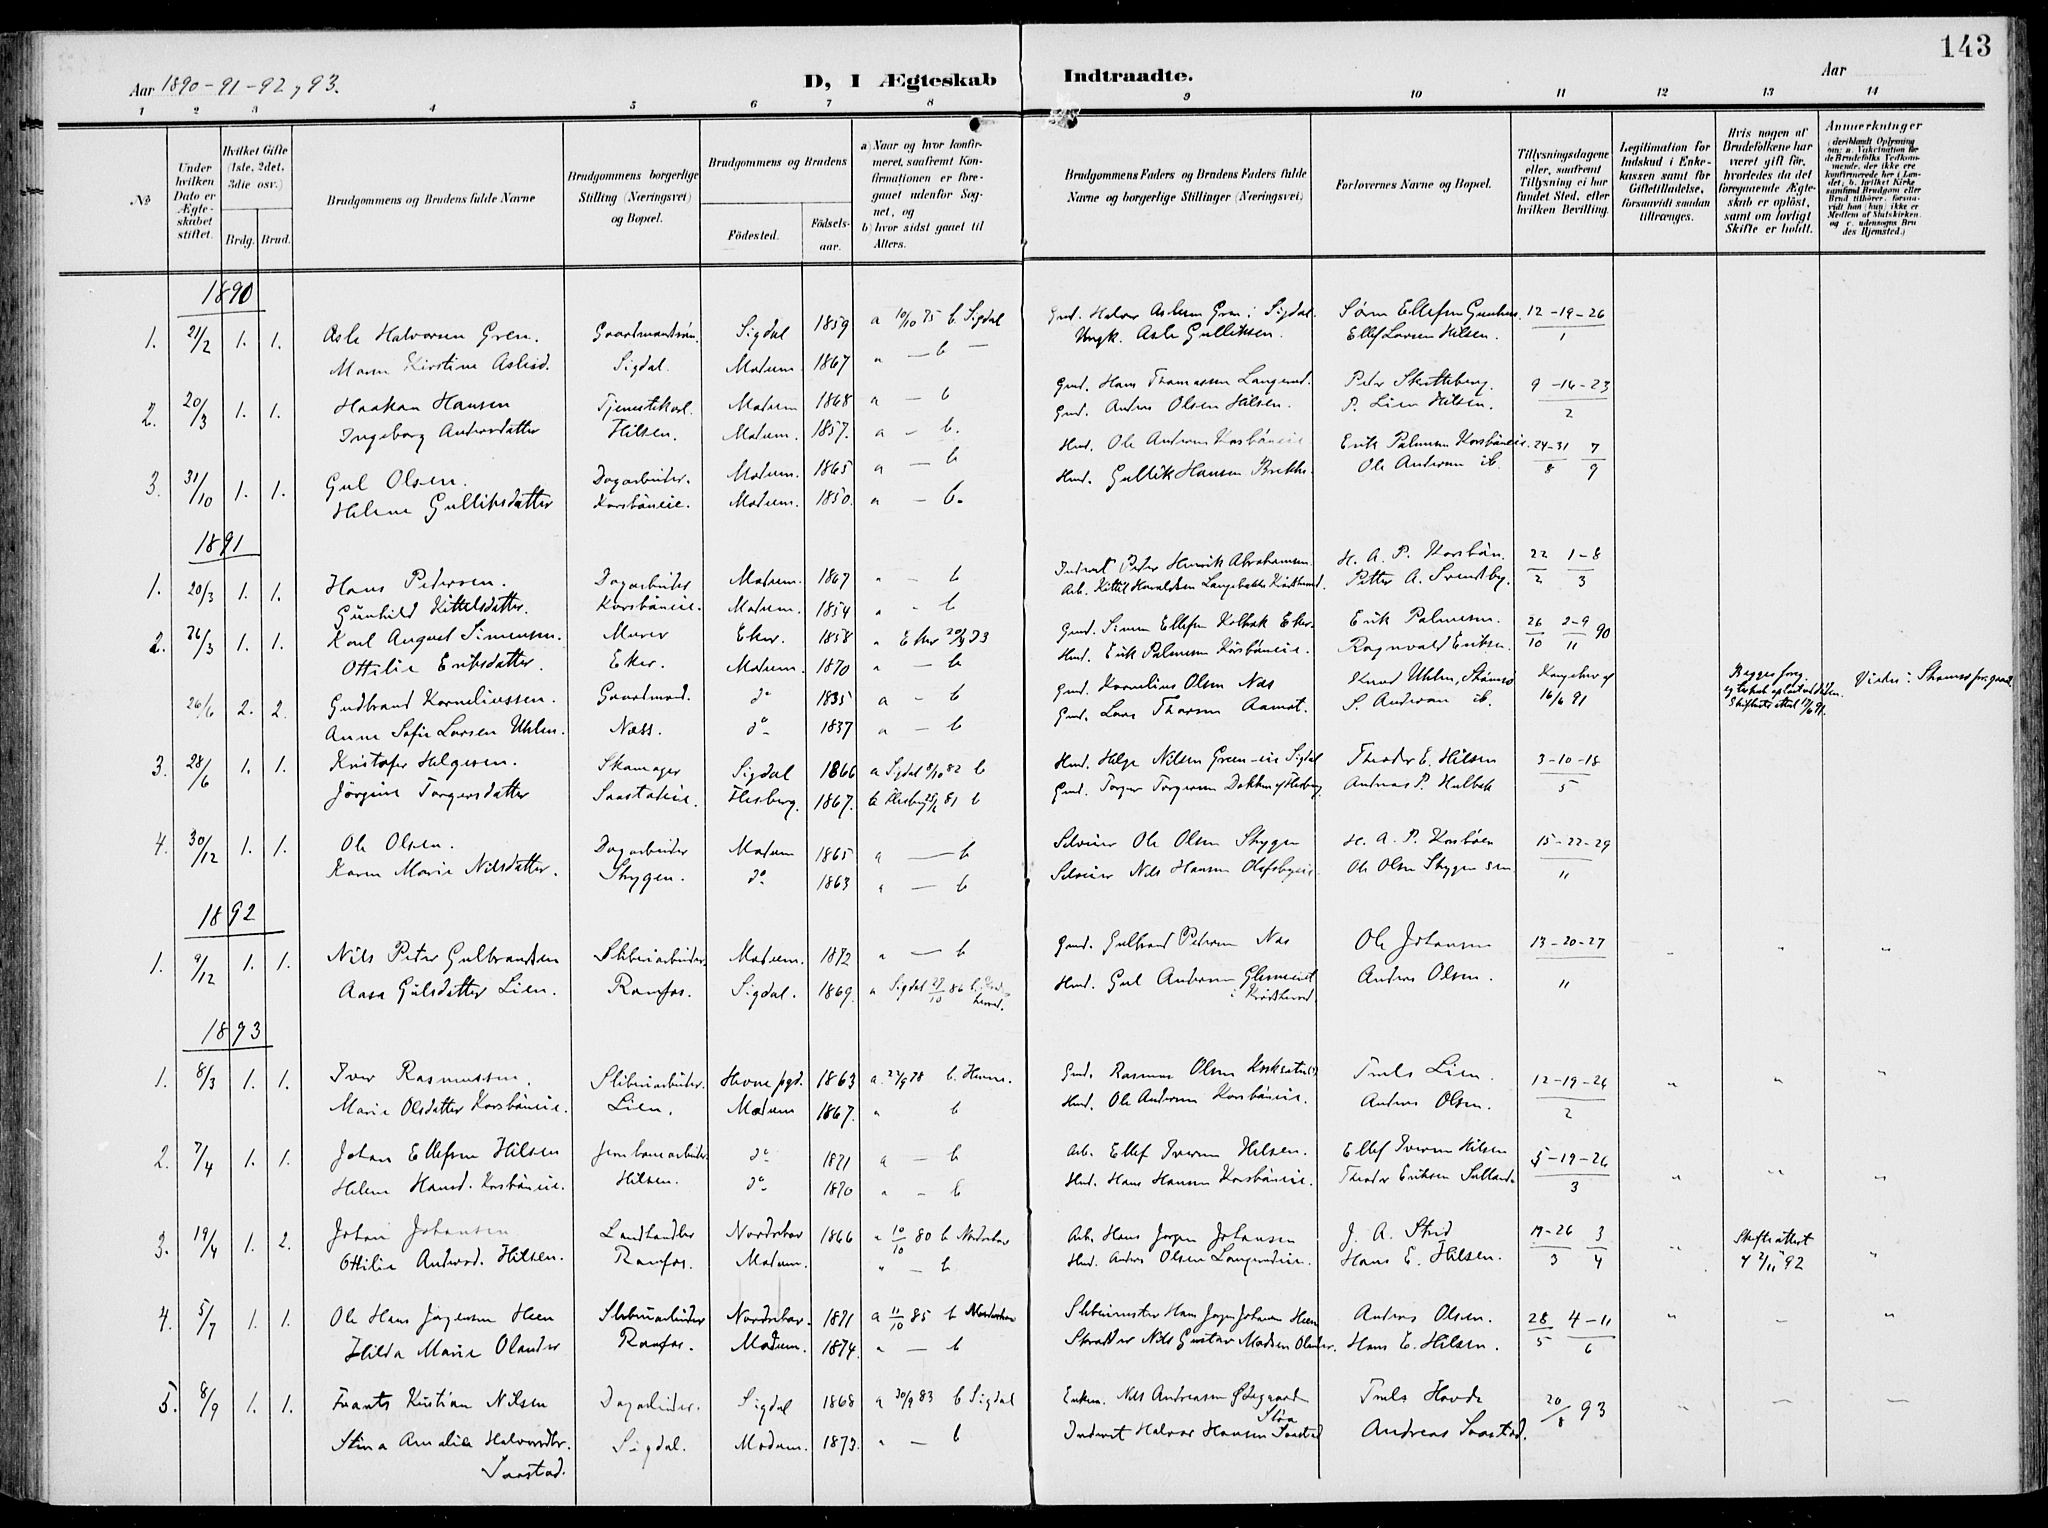 143
Aar 1890-91-92, 93.
D, I Ægteskab Indtraadte.
Aar
1 2 3 4 5 6 7 8 9 10 11 12 13 14
No
Under hvilken Dato er Ægteskabet stiftet.
Hvilket Gifte (1ste, 2det, 3die osv.)
Brdg. Brud.
Brudgommens og Brudens fulde Navne
Brudgommens borgerlige Stilling (Næringsvei) og Bopæl.
Brudgommens og Brudens
Födested. Födselsaar.
a) Naar og hvor konfirmeret, saafremt Konfirmationen er foregaaet udenfor Sognet, og
b) hvor sidst gaaet til Alters.
Brudgommens Faders og Brudens Faders fulde Navne og borgerlige Stillinger (Næringsvei)
Forlovernes Navne og Bopæl.
Tillysningsdagene eller, saafremt Tillysning ei har fundet Sted, efter hvilken Bevilling.
Legitimation for Indskud i Enkekassen samt for Giftetilladelse, forsaavidt saadan tiltrænges.
Hvis nogen af Brudefolkene har været gift för, hvorledes da det foregaaende Ægteskab er oplöst, samt om lovligt Skifte er holdt.
Anmærkninger
(deriblandt Oplysning om: a. Vakcination for de Brudefolks Vedkommende, der ikke ere konfirmerede her i Landet; b. hvilket Kirkesamfund Brudgom eller Brud tilhörer, forsaavidt han (hun) ikke er Medlem af Statskirken, og c. udensogns Brudes Hjemsted.)
1890
1. 21/2 1. 1. Asle Halvorsen Gren. Gaardmandssøn. Sigdal 1859 a 10/10 75 b. Sigdal Gmd. Halvor Aslesen Gren i Sigdal. Søren Ellefsen 12-19-26
Maren Kirstine Aslesd. Sigdal. Modum. 1867 " — b — Ungk. Asle Gulliksen. Ellef Larsen Hilsen. 1
2. 20/3 1. 1. Haakon Hansen Tjenestekarl. Modum 1868 a — b Gmd. Hans Thomassen Langerud. Peter Skatteberg. 9-16-23
Ingeborg Andersdatter Hilsen. Modum. 1857. a — b. Gmd. Anders Olsen Hilsen. P. Lien Hilsen. 2
3. 31/10 1. 1. Gul Olsen. Dagarbeider. Modum. 1865 a — b Hmd. Ole Andersen Korsbøneie Erik Palmesen Korsbøneie. 24-31/8 7/9
Helene Gulliksdatter Korsbøneie. Modum. 1850. a — b. Hmd. Gullik Hansen Brekke. Ole Andersen ib.
1891
1. 20/3 1. 1. Hans Petersen. Dagarbeider Modum. 1867 " — b Inderst Peter Henrik Abrahamsen. H. A. P. Korsbøn. 22/2 1-8/3
Gunhild Kittelsdatter. Korsbøneie. Modum. 1854 " — b Arb. Kittil Havaldsen Langebakke Krødsherred. Petter A. Svendby.
2. 26/3 1. 1. Karl August Simensen. Murer Eker. 1858 " Eker 20/4 73 Gmd. Simen Ellefsen Kolbræk Eker. Erik Palmesen. 26/10 2-9/11 90
Ottilie Eriksdatter. Eker. Modum. 1870 " — b Hmd. Erik Palmesen Korsbøneie. Ragnvald Eriksen.
26/6 2. 2. Gudbrand Korneliussen. Gaardmand. do 1835 a — b Gmd. Kornelius Olsen Næs Knud Uhlen, Strømsø Kongebrev af
Anne Sofie Larsen Uhlen. Næss. do 1837 a — b Gmd. Lars Thorsen Aamot. S. Andersen ib. 16/6 91
3. 28/6 1. 1. Kristofer Helgesen. Skomager Sigdal 1866 a Sigdal 8/10 82 b Hmd. Helge Nilsen Green-eie Sigdal Theodor E. Hilsen 3-10-18
Jørgine Torgersdatter Saastadeie. Flesberg. 1867. b Flesberg 81 b Gmd. Torger Torgersen Dokken af Flesberg. Andreas P. Hulbak 5
4. 30/12 1. 1. Ole Olsen. Dagarbeider Modum 1865 a — b Selveier Ole Olsen Skygen H. A. P. Korsbøen 15-22-29
Karen Marie Nilsdatter. Skygen. do 1863 " — b Selveier Nils Hansen Olafsbyeie. Ole Olsen Skygen sen. 11
1892
1. 9/12 1. 1. Nils Peter Gulbrandsen Sliberiarbeider. Modum. 1872 " — b Gmd. Gulbrand Petersen Næs Ole Johansen 13-20-27 " " "
Aasa Gulsdatter Lien. Ramfos. Sigdal. 1869. a Sigdal 27/10 86 b. Krødsherred. Hmd. Gul Andersen Glesneeiet i Krødsherred. Anders Olsen. 11
1893
1. 8/3 1. 1. Iver Rasmussen. Sliberiarbeider. Hevne pgd. 1863 a. 22/9 78 b. Hevne. Gmd. Rasmus Olsen Truls Lien. 12-19-26 " " "
Marie Olsdatter Korsbøneie. Lien. Modum 1867. " b Hmd. Ole Andersen Korsbøneie. Anders Olsen. 2
2. 7/4 1. 1. Johan Ellefsen Hilsen Jernbanearbeider. do 1871 a — b Arb. Ellef Iversen Hilsen. Ellef Iversen Hilsen 5-19-26 " " "
Helene Hansd. Korsbøneie. Hilsen. do 1870 " — b Hmd. Hans Hansen Korsbøneie. Theodor Eriksen Sulland. 3
3. 19/4 1. 2. Johan Johansen Landhandler Norderhov 1866 " 10/10 80 b Norderhov Arb. Hans Jørgen Johansen J. A. Strid 19-26/3 3/4 " Skifteattest "
Ottilie Andersd. Hilsen. Ramfos. Modum. " — b Hmd. Anders Olsen Langerudeie. Hans E. Hilsen. af 2/11 92
4. 5/7 1. 1. Ole Hans Jørgensen Heen Sliberiarbeider Norderhov. 1871 a 11/10 85 b Norderhov Sliberimester Hans Jørgen Johansen Heen Anders Olsen. 28/5 4-11/6 " – "
Hilda Marie Olander Ramfos. Modum. 1874. " — b Skrædder Nils Gustav Madsen Olander. Hans E. Hilsen.
5. 8/9 1. 1. Frants Kristian Nilsen Dagarbeider. Sigdal 1868 a 30/9 83 b Sigdal Enkem. Nils Andreasen Ødegaard Truls Hovde 20/8 93 " — —
Stina Amalie Halvorsdtr. Saastad. Sigdal. Modum. 1873. " — b Inderst Halvor Hansen Saastad Andreas Saastad.